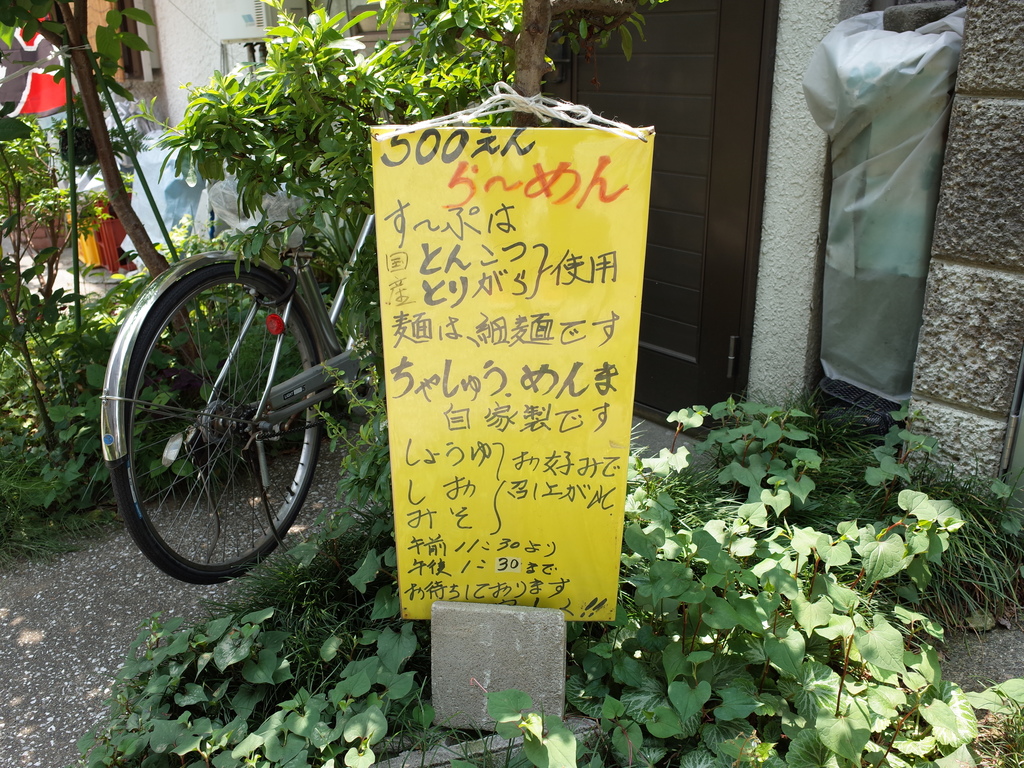 500えん
らーめん
すーぷは
国産 とんこつ とりがら 使用
麺は、細麺です
ちゃしゅう、めんま
自家製です
しょうゆ
しお
みそ
お好みで
召上がれ
午前11:30より
午後1:30まで
お待ちしております